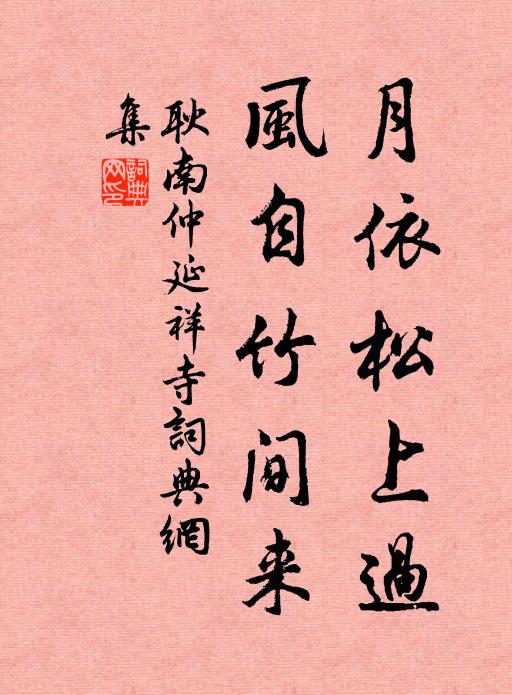 月依松上過
風自竹间来
耿南仲延祥寺詞典網
集
詞典网印